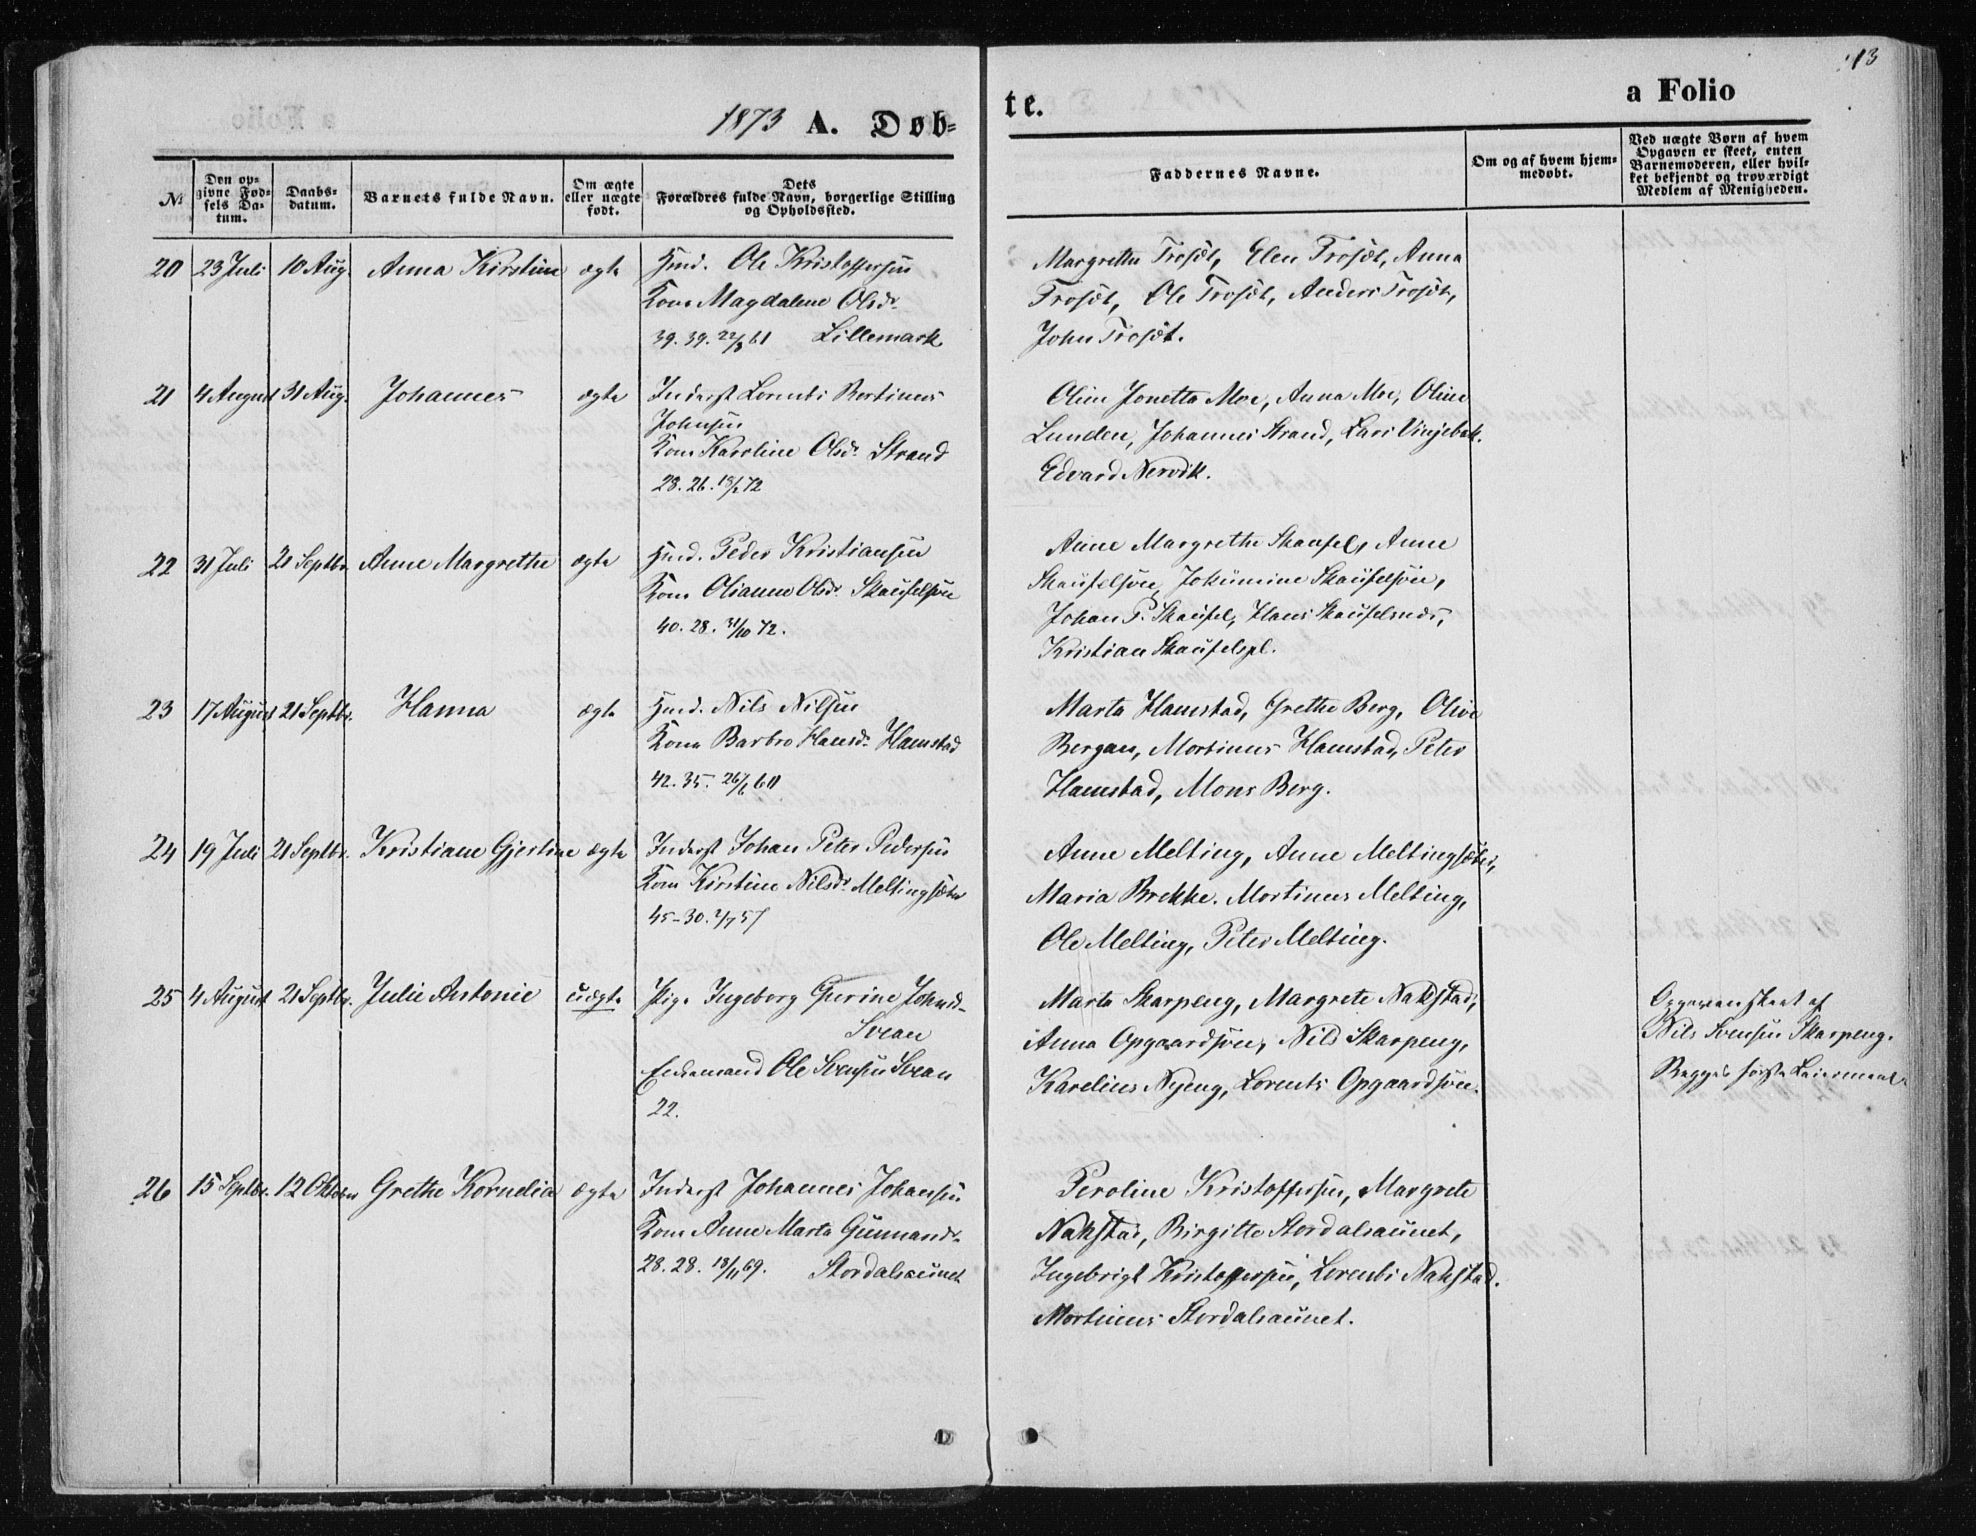 13
1873 A. Døb=
te.
a Folio
№
Den op-
givne Fød-
sels Da-
tum.
Daabs-
datum.
Barnets fulde Navn.
Om ægte
eller uægte
født.
Dets
Forældres fulde Navn, borgerlige Stilling
og Opholdssted.
Faddernes Navne.
Om og af hvem hjem-
medøbt.
Ved uægte Børn af hvem
Opgaven er skeet, enten
Barnemoderen, eller hvil-
ket bekjendt og troværdigt
Medlem af Menigheden.
20 23 Juli 10 Aug. Anna Kirstine ægte Hmd. Ole Kristoffersen
Kone Magdalene Olsdr.
39. 39. 22/3 61 Lillemark
Margrethe Trøsæt, Elen Trøsæt, Anna
Trøsæt, Ole Trøsæt, Anders Trøsæt,
John Trøsæt.
21 4 August 31 Aug. Johannes ægte Inderst Lorents Bertinus
Johnsen
Kone Karoline Olsdr. Strand
28. 26. 72
Oline Jonetta Moe, Anna Moe, Oline
Lunden, Johannes Strand, Lars Vinjebak.
Edvard Nervik.
22 31 Juli 21 Septbr. Anne Margrethe ægte Hmd. Peder Kristiansen
Kone Olianna Olsdr. Skaufelsøie
40. 28. 31/10 72.
Anne Margrethe Skaufel, Anne
Skaufelsøie, Johannine Skaufelsøie,
Johan P. Skaufel, Hans Skaufelsnæs,
Kristian Skaufelspl.
23 17 August 21 Septbr. Hanna ægte Hmd. Nils Nilsen
Kone Barbro Hansdr. Hamstad
42. 35. 26/6 60
Marta Hamstad, Grethe Berg, Olive
Bergan, Mortinus Hamstad, Peter
Hamstad, Mons Berg.
24 19 Juli 21 Septbr. Kristiane Gjertine ægte Inderst Johan Peter Pedersen
Kone Kirstine Nilsdr. Meltingsæter
45-30. 2/7 57
Anne Melting, Anne Meltingsæter,
Maria Brekke. Mortinus Melting,
Ole Melting, Peter Melting.
25 4 August 21 Septbr. Julie Antonie uægte Pige Ingeborg Gurine Johnsd.
Svean
Enkemand Ole Svensen Svean
22.
Marta Skarpeng, Margrete Nakstad,
Anna Opgaardsøien, Nils Skarpeng,
Karelius Nyeng, Lorents Opgaardsøien.
Opgaven skeet af
Nils Svensen Skarpeng.
Begges første Leiermaal.
26 15 Septbr. 12 Oktobr Grethe Kornelia ægte Inderst Johannes Johansen
Kone Anne Marta Gunnarsdr.
28. 28. 18/11 69. Stordalsaunet
Peroline Kristoffersen, Margrete
Nakstad, Birgitte Stordalsaunet,
Ingebrigt Kristoffersen, Lorents Nakstad.
Mortinus Stordalsaunet.